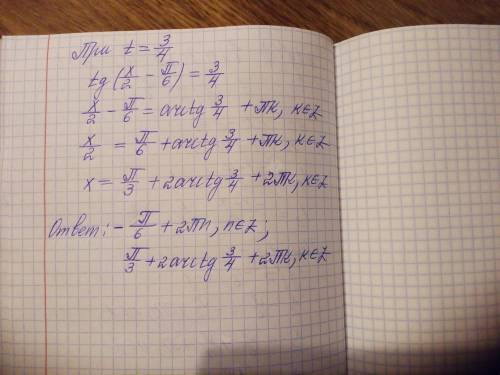 При t = 3/4
tg(x/2 - π/6) = 3/4
x/2 - π/6 = arctg 3/4 + πk, k∈Z
x/2 = π/6 + arctg 3/4 + πk, k∈Z
x = π/3 + 2arctg 3/4 + 2πk, k∈Z
Ответ: - π/6 + 2πn, n∈Z;
π/3 + 2arctg 3/4 + 2πk, k∈Z